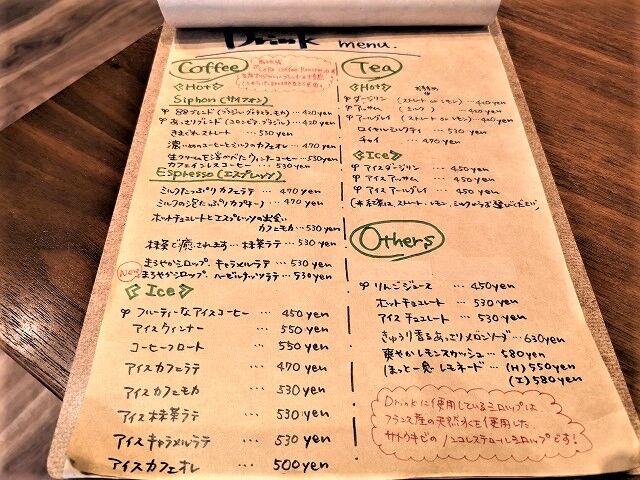 Drink menu.
Coffee
《Hot》
Siphon (サイフォン)
88ブレンド (ブラジル, グァテマラ, モカ) … 420yen
あっさりブレンド (コロンビア, ブラジル) … 420yen
きまぐれストレート … 530yen
濃いめのコーヒーとミルクのカフェオレ … 470yen
生クリームを浮かべたウィンナーコーヒー … 530yen
カフェインレスコーヒー … 530yen
Espresso (エスプレッソ)
ミルクたっぷりカフェラテ … 470yen
ミルクの泡たっぷりカプチーノ … 470yen
ホットチョコレートとエスプレッソの出会い
カフェモカ … 530yen
抹茶で癒されます… 抹茶ラテ … 530yen
まろやかシロップ. キャラメルラテ … 530yen
New まろやかシロップ. ヘーゼルナッツラテ … 530yen
《Ice》
フルーティーなアイスコーヒー … 450yen
アイスウィンナー … 550yen
コーヒーフロート … 550yen
アイスカフェラテ … 470yen
アイスカフェモカ … 530yen
アイス抹茶ラテ … 530yen
アイスキャラメルラテ … 530yen
アイスカフェオレ … 500yen
Tea
《Hot》
おすすめ
ダージリン (ストレート or レモン) … 420yen
アッサム (ミルク) … 420yen
アールグレイ (ストレート or レモン) … 420yen
ロイヤルミルクティ … 530yen
チャイ … 470yen
《Ice》
アイスダージリン … 450yen
アイスアッサム … 450yen
アイスアールグレイ … 450yen
(※紅茶は、ストレート、レモン、ミルクからお選びください)
Others
りんごジュース … 450yen
ホットチョコレート … 530yen
アイスチョコレート … 530yen
きゅうり香るあっさりメロンソーダ … 630yen
爽やかレモンスカッシュ … 580yen
ほっと一息 レモネード … (H) 550yen
(I) 580yen
Drinkに使用しているシロップは
フランス産の天然水を使用した
サトウキビのノンコレステロールシロップです!